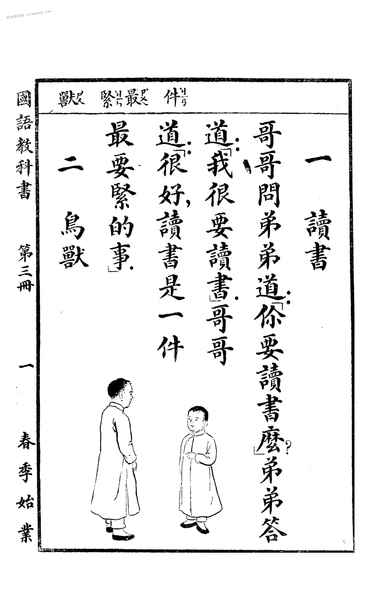 件 最 緊 獸
一 讀書
哥哥問弟弟道：「你要讀書麼？」弟弟答
道：「我很要讀書」。哥哥
道：「很好，讀書是一件
最要緊的事」。
二 鳥獸
國語教科書 第三冊 一 春季始業